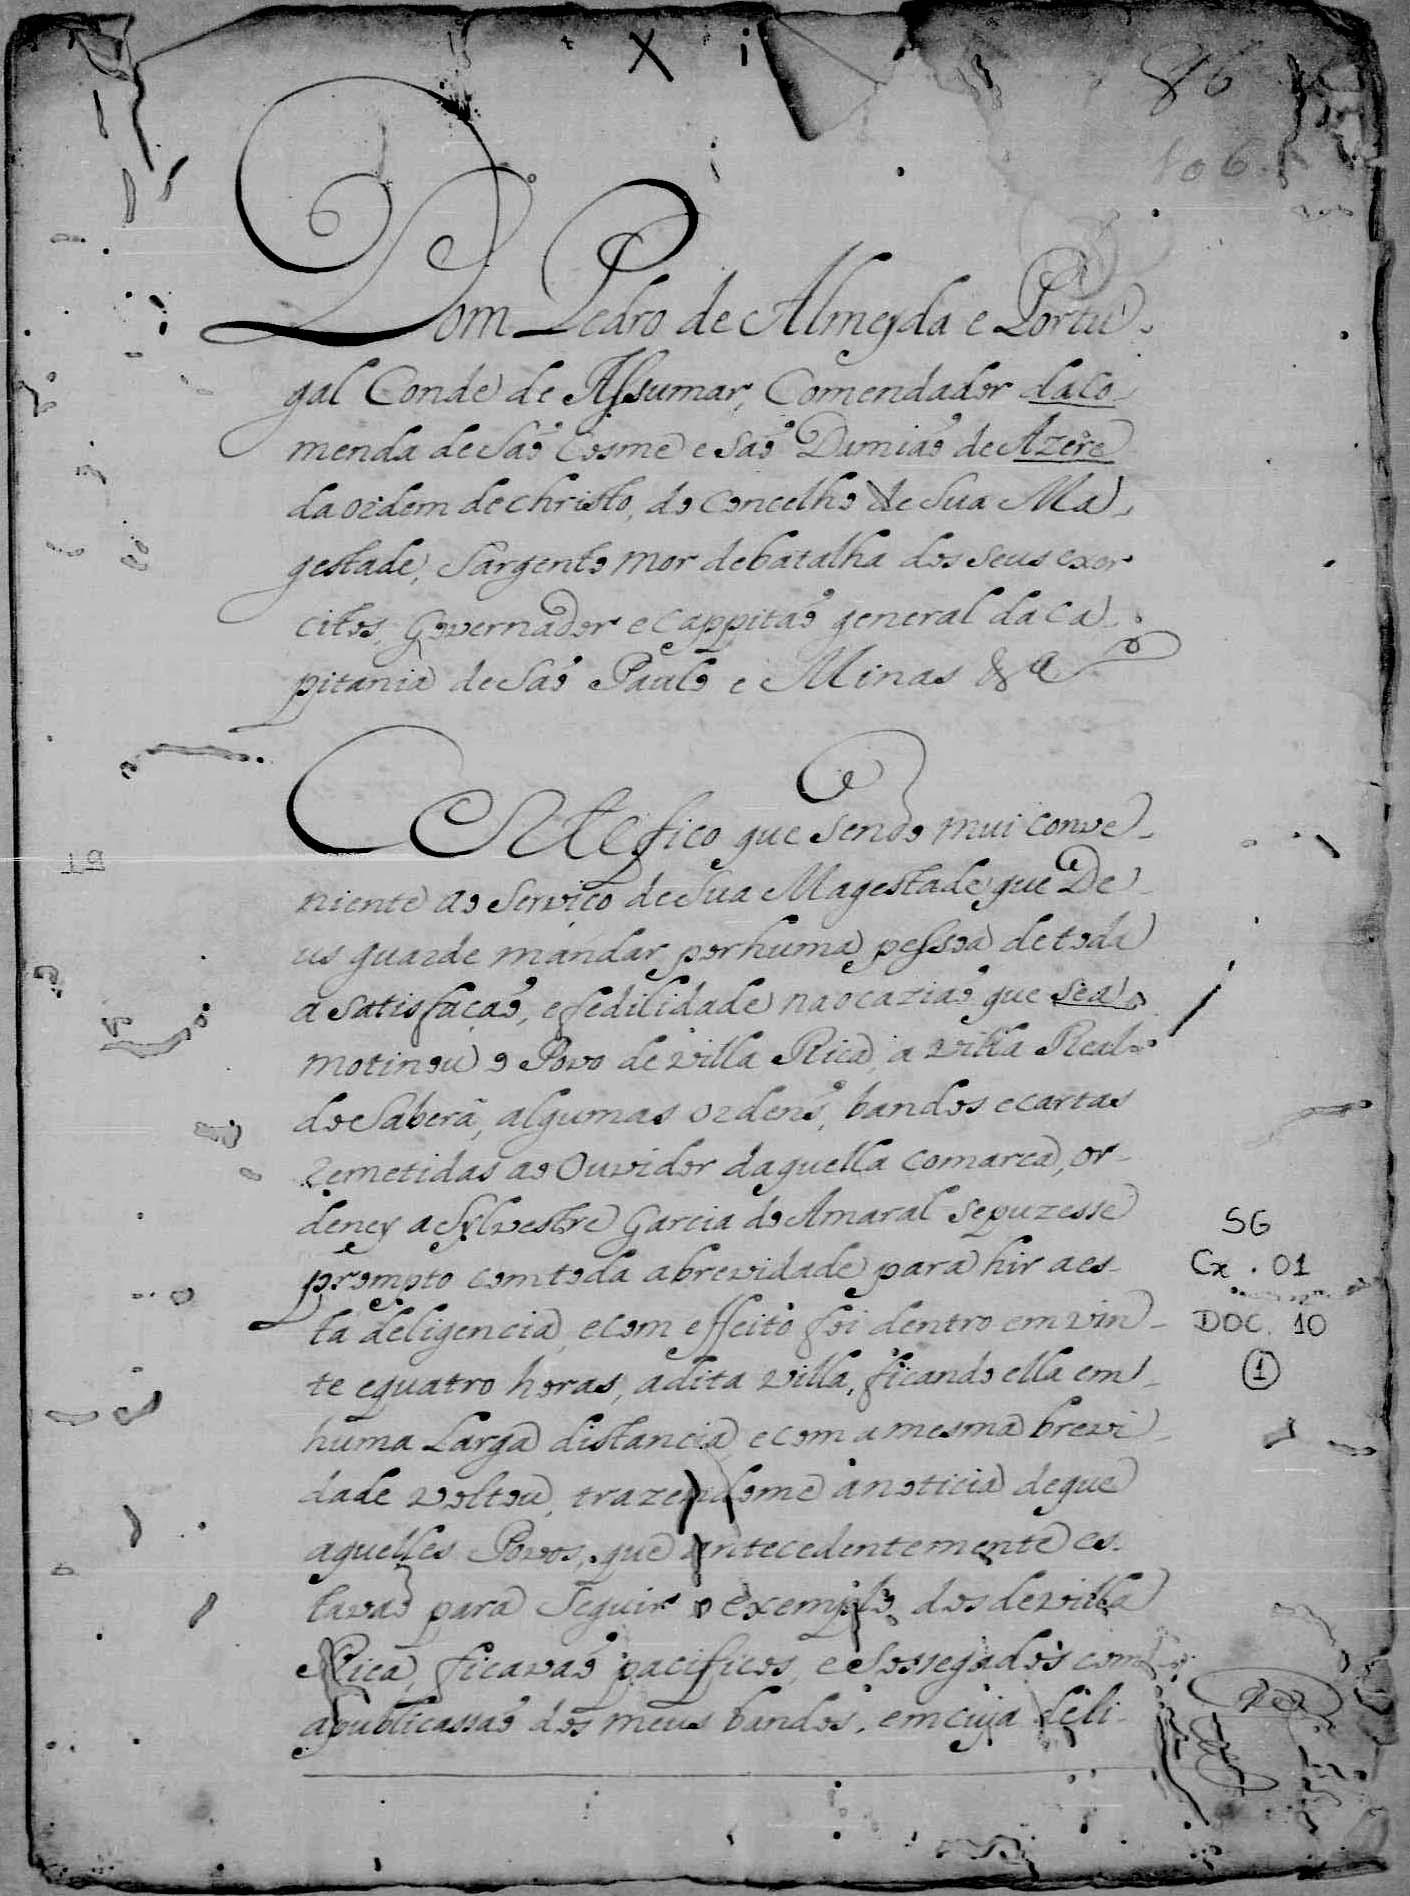 X i
86
106
Dom Pedro de Almeyda e Portu-
gal Conde de Assumar, Comendador da Co-
menda de Saõ Cosme e Saõ Damiaõ de Azere
da ordem de christo, do Concelho de Sua Ma-
gestade, Sargento mor de batalha dos seus exer
citos, Governador e Cappitaõ general da Ca-
pitania de Saõ Paulo e Minas &a
Certefico que sendo mui conve-
niente ao Serviço de Sua Magestade que De-
us guarde mandar por huma pessoa de toda
a satisfaçaõ, e fedilidade na ocaziaõ que sea-
motinou o Povo de villa Rica, a villa Real
do Saberâ, algumas ordens, bandos e cartas
remetidas ao Ouvidor daquella comarca, or-
deney a Sylvestre Garcia do Amaral se puzesse
prompto com toda a brevidade para hir a es-
ta deligencia, e com effeito foi dentro em vin-
te e quatro horas, a dita villa, ficando ella em
huma Larga distancia, e com a mesma brevi-
dade voltou, trazendome a noticia de que
aquelles Povos, que antecedentemente es-
tavaõ para seguir o exemplo dos de villa
Rica, ficavaõ pacificos, e sossegados com
a publicassaõ dos meus bandos, em cuja deli-
SG
Cx. 01
DOC. 10
1